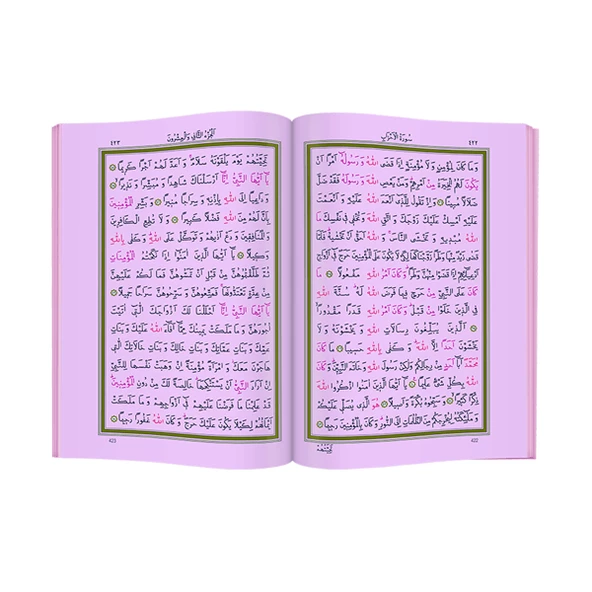 سورة الاحزاب ٤٢٢
وما كان لمؤمن ولا مؤمنة اذا قضى الله ورسوله امرا ان
يكون لهم الخيرة من امرهم ومن يعص الله ورسوله فقد ضل
ضلالا مبينا واذ تقول للذي انعم الله عليه وانعمت
عليه امسك عليك زوجك واتق الله وتخفي في نفسك ما
الله مبديه وتخشى الناس والله احق ان تخشيه فلما
قضى زيد منها وطرا زوجناكها لكي لا يكون على المؤمنين حرج في ازواج
ادعيائهم اذا قضوا منهن وطرا وكان امر الله مفعولا ما
كان على النبي من حرج فيما فرض الله له سنة الله
في الذين خلوا من قبل وكان امر الله قدرا مقدورا
الذين يبلغون رسالات الله ويخشونه ولا
يخشون احدا الا الله وكفى بالله حسيبا ما كان
محمد ابا احد من رجالكم ولكن رسول الله وخاتم النبين وكان
الله بكل شيء عليما يا ايها الذين امنوا اذكروا الله
ذكرا كثيرا وسبحوه بكرة واصيلا هو الذي يصلي عليكم
وملئكته ليخرجكم من الظلمات الى النور وكان بالمؤمنين رحيما
422
تحيتهم
الجزء الثاني والعشرون ٤٢٣
تحيتهم يوم يلقونه سلام واعد لهم اجرا كريما
يا ايها النبي انا ارسلناك شاهدا ومبشرا ونذيرا
وداعيا الى الله باذنه وسراجا منيرا وبشر المؤمنين
بان لهم من الله فضلا كبيرا ولا تطع الكافرين
والمنافقين ودع اذيهم وتوكل على الله وكفى بالله
وكيلا يا ايها الذين امنوا اذا نكحتم المؤمنات
ثم طلقتموهن من قبل ان تمسوهن فما لكم عليهن
من عدة تعتدونها فمتعوهن وسرحوهن سراحا جميلا
يا ايها النبي انا احللنا لك ازواجك التي اتيت
اجورهن وما ملكت يمينك مما افاء الله عليك وبنات
عمك وبنات عماتك وبنات خالك وبنات خالاتك التي
هاجرن معك وامراة مؤمنة ان وهبت نفسها للنبي
ان اراد النبي ان يستنكحها خالصة لك من دون المؤمنين
قد علمنا ما فرضنا عليهم في ازواجهم وما ملكت
ايمانهم لكيلا يكون عليك حرج وكان الله غفورا رحيما
423